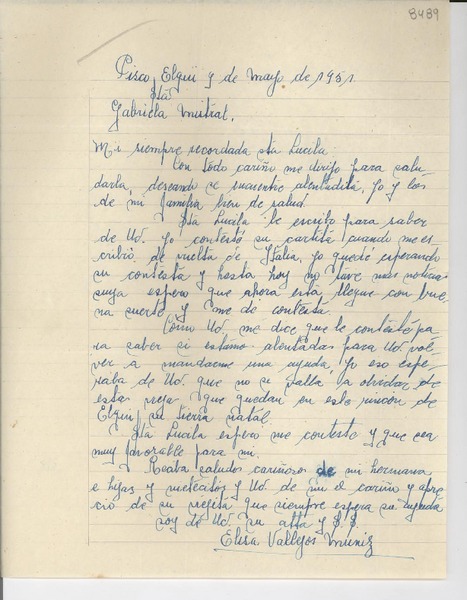 8489
Pisco Elqui 9 de Mayo de 1951
Stā
Gabriela Mistral.
Mi siempre recordada Sta Lucila
Con todo cariño me dirijo para salu-
darla, deseando se encuentre alentadita, yo y los
de mi familia bien de salud.
Sta Lucila le escribo para saber
de Ud. Yo contesté su cartita cuando me es-
cribió de vuelta de Italia, yo quedé esperando
su contesta y hasta hoy no tuve mas noticia
suya espero que ahora esta llegue con bue-
na suerte y me de contesta.
Como Ud. me dice que le conteste pa
ra saber si estamos alentadas para Ud. vol-
ver a mandarme una ayuda, yo eso espe-
raba de Ud. que no se valla a olvidar de
estas viejas que quedan en este rincon de
Elqui su tierra natal.
Sta Lucila espero me conteste y que cea
muy favorable para mi.
Reciba saludos cariñosos de mi hermana
e hijas y Ud. de mi el cariño y apre-
cio de su viejita que siempre espera su ayuda
soy de Ud. su atta y S.S.
Elisa Vallejos Muniz